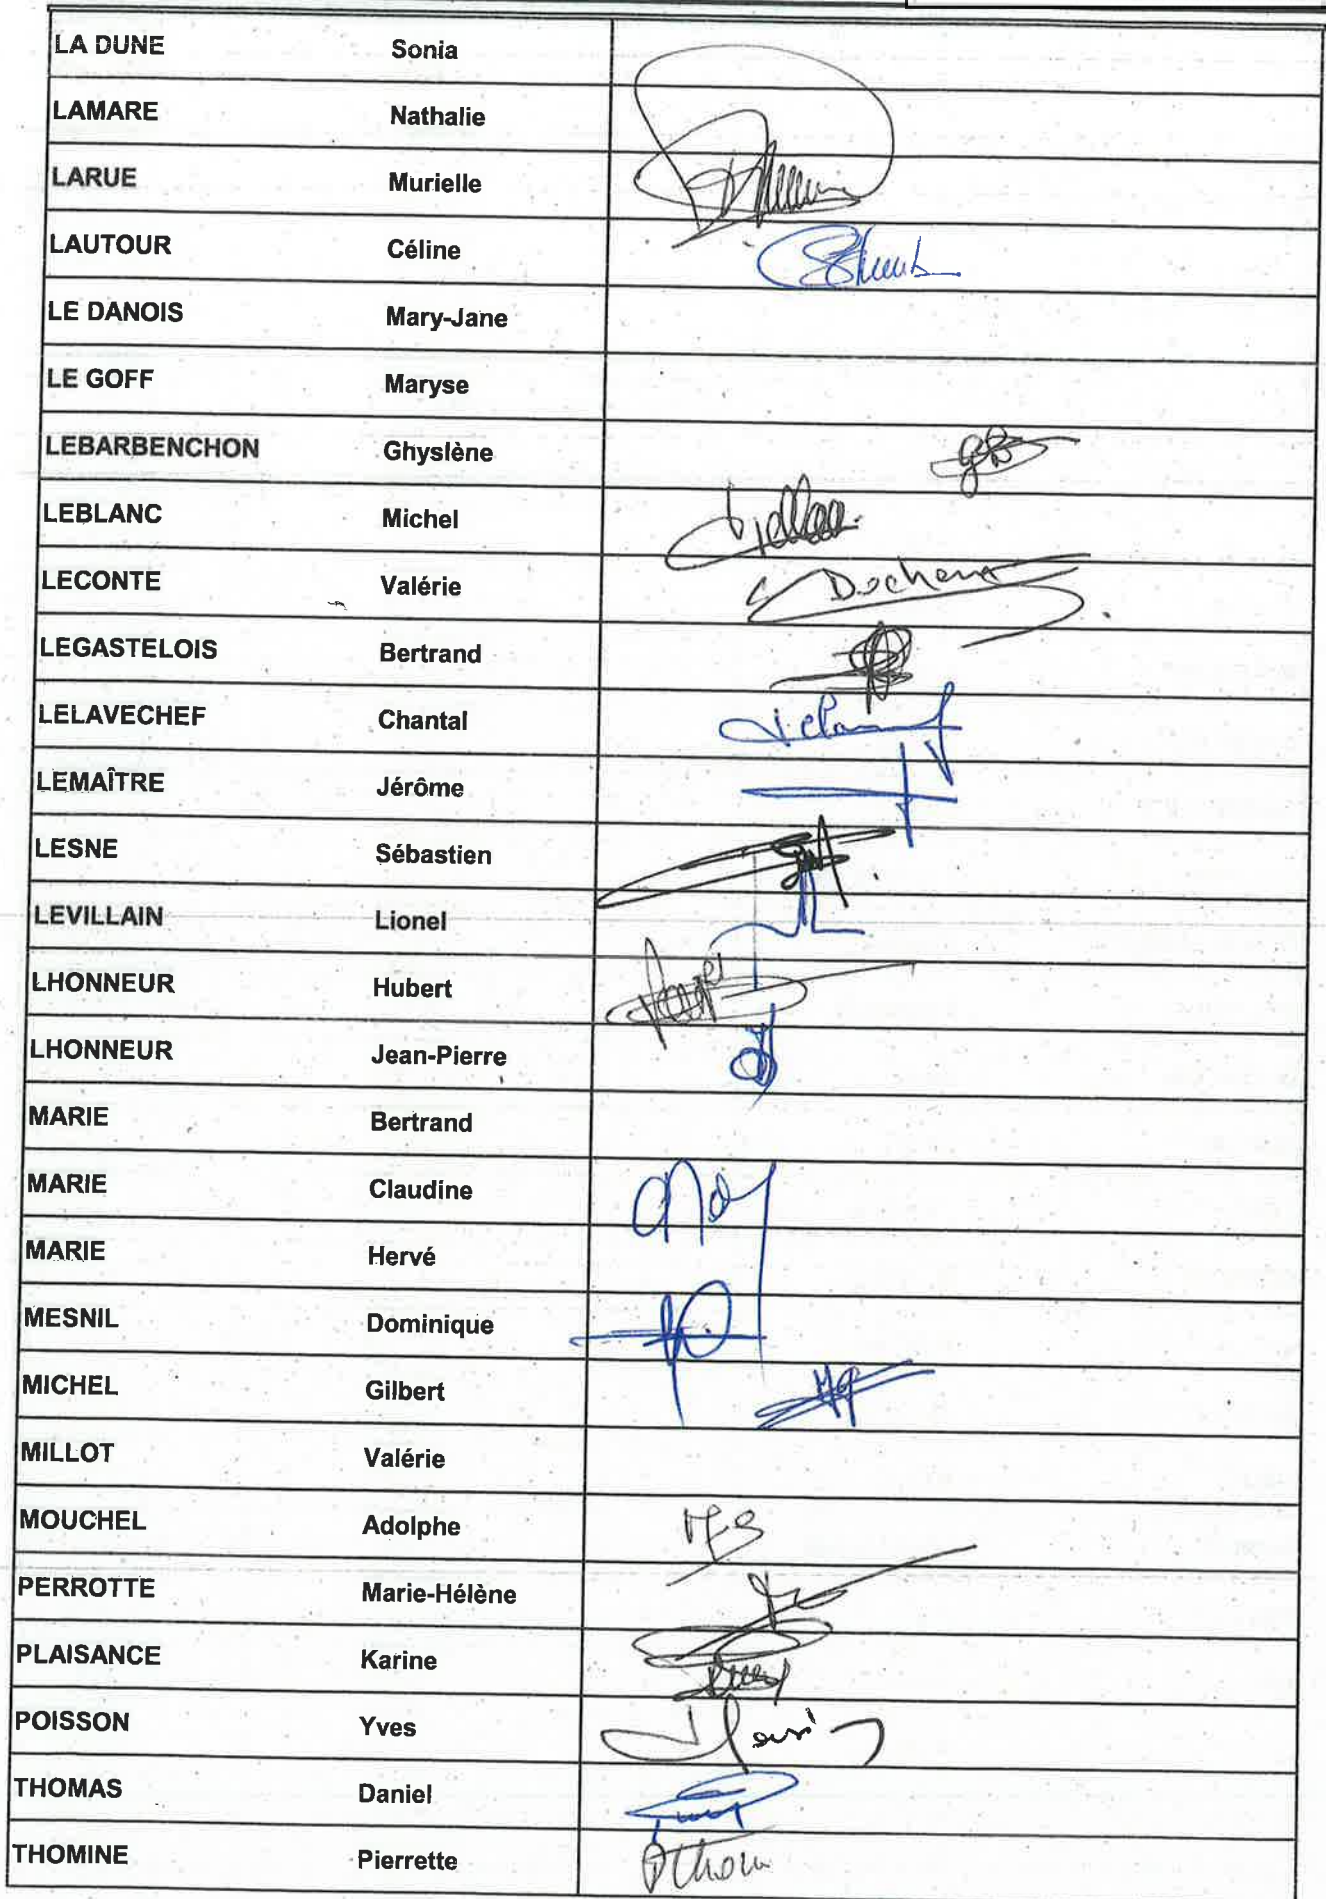 LA DUNE Sonia
LAMARE Nathalie
LARUE Murielle
LAUTOUR Céline
LE DANOIS Mary-Jane
LE GOFF Maryse
LEBARBENCHON Ghyslène
LEBLANC Michel
LECONTE Valérie
LEGASTELOIS Bertrand
LELAVECHEF Chantal
LEMAÎTRE Jérôme
LESNE Sébastien
LEVILLAIN Lionel
LHONNEUR Hubert
LHONNEUR Jean-Pierre
MARIE Bertrand
MARIE Claudine
MARIE Hervé
MESNIL Dominique
MICHEL Gilbert
MILLOT Valérie
MOUCHEL Adolphe
PERROTTE Marie-Hélène
PLAISANCE Karine
POISSON Yves
THOMAS Daniel
THOMINE Pierrette